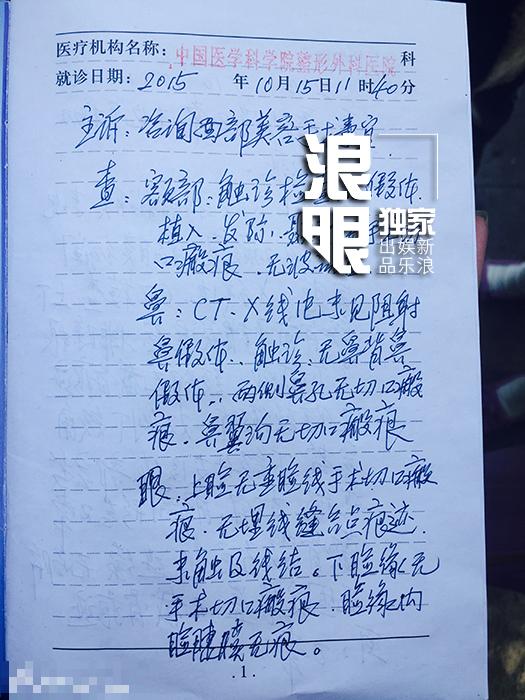 医疗机构名称：中国医学科学院整形外科医院 科
就诊日期：2015 年10月15日11时40分
主诉：咨询面部美容手术事宜
查：额部：触诊检 假体
植入、发际、 手
口瘢痕、无
鼻：CT-X线也未见阻射
鼻假体、触诊：无鼻背鼻
假体、两侧鼻孔无切口瘢
痕、鼻翼沟无切口瘢痕
眼：上睑无重睑线手术切口瘢
痕、无埋线缝合点痕迹
未触及线结。下睑缘无
手术切口瘢痕、睑缘内
睑 膜无痕。
浪眼
独家
出娱新
品乐浪
·1·